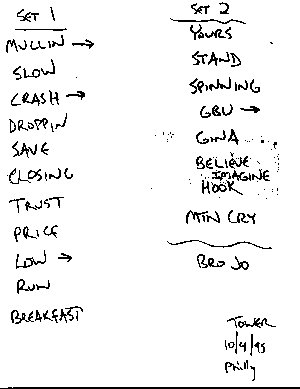 SET 1
MULLIN →
SLOW
CRASH →
DROPPIN
SAVE
CLOSING
TRUST
PRICE
LOW →
RUN
BREAKFAST
SET 2
YOURS
STAND
SPINNING
GBU →
GINA
BELIEVE
IMAGINE
HOOK
MTN CRY
BRO JO
TOWER
10/4/95
Philly